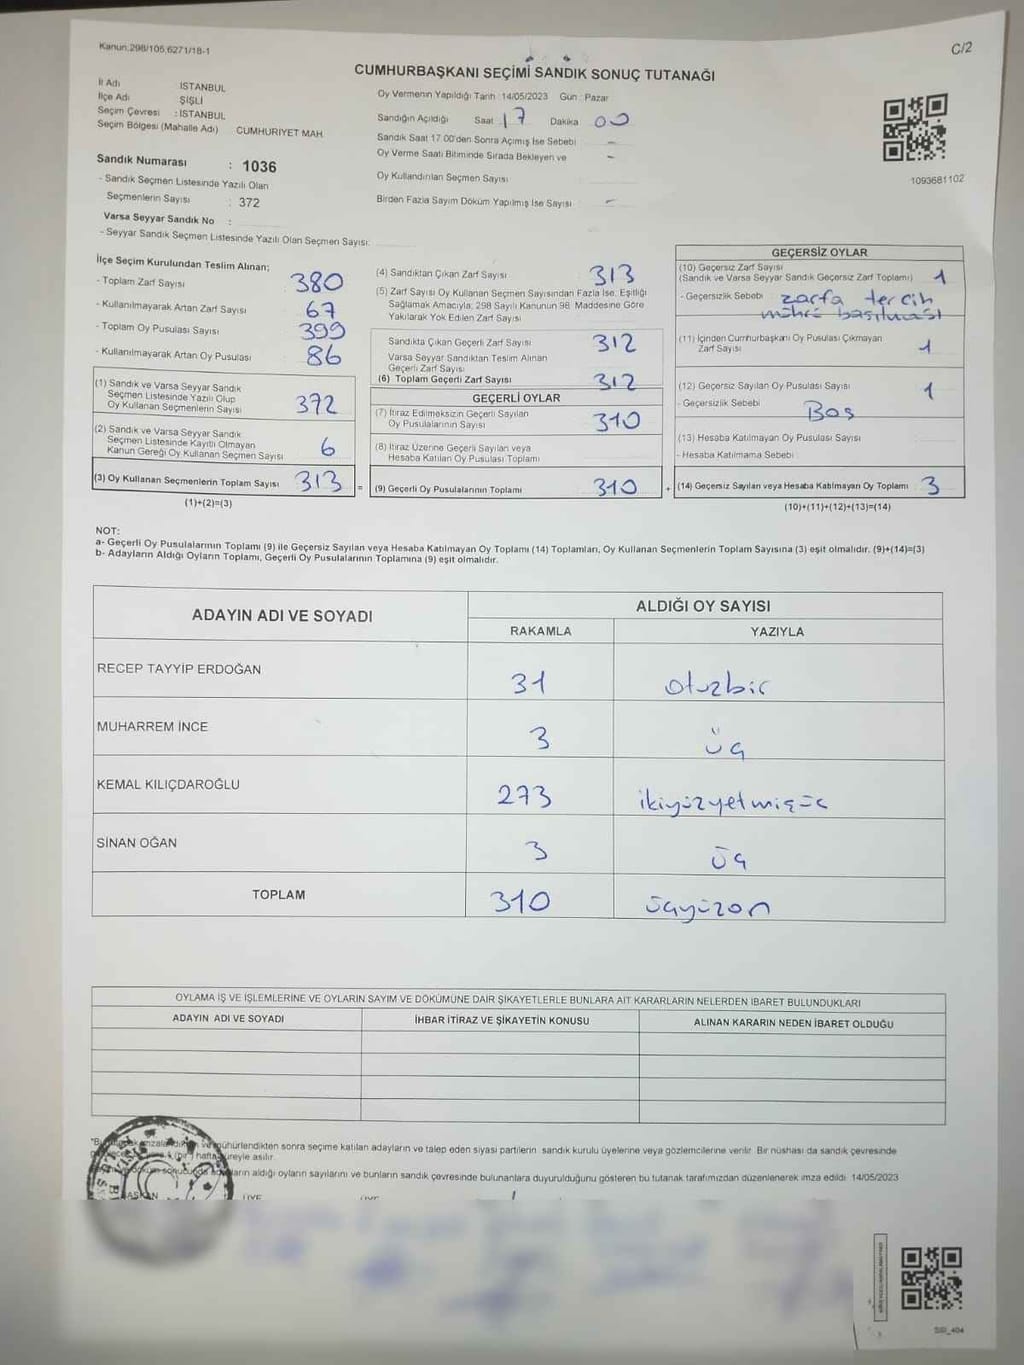 Kanun:298/105,6271/18-1
C/2
CUMHURBAŞKANI SEÇİMİ SANDIK SONUÇ TUTANAĞI
İl Adı : İSTANBUL
İlçe Adı : ŞİŞLİ
Seçim Çevresi : İSTANBUL
Seçim Bölgesi (Mahalle Adı) CUMHURİYET MAH.
Sandık Numarası : 1036
- Sandık Seçmen Listesinde Yazılı Olan
Seçmenlerin Sayısı : 372
Varsa Seyyar Sandık No :
- Seyyar Sandık Seçmen Listesinde Yazılı Olan Seçmen Sayısı:
Oy Vermenin Yapıldığı Tarih : 14/05/2023 Gün : Pazar
Sandığın Açıldığı Saat : 17 Dakika 00
Sandık Saat 17.00'den Sonra Açılmış İse Sebebi : -
Oy Verme Saati Bitiminde Sırada Bekleyen ve -
Oy Kullandırılan Seçmen Sayısı
Birden Fazla Sayım Döküm Yapılmış İse Sayısı : -
1093681102
İlçe Seçim Kurulundan Teslim Alınan;
- Toplam Zarf Sayısı 380
- Kullanılmayarak Artan Zarf Sayısı 67
- Toplam Oy Pusulası Sayısı 399
- Kullanılmayarak Artan Oy Pusulası 86
(1) Sandık ve Varsa Seyyar Sandık
Seçmen Listesinde Yazılı Olup
Oy Kullanan Seçmenlerin Sayısı 372
(2) Sandık ve Varsa Seyyar Sandık
Seçmen Listesinde Kayıtlı Olmayan
Kanun Gereği Oy Kullanan Seçmen Sayısı 6
(3) Oy Kullanan Seçmenlerin Toplam Sayısı 313 =
(1)+(2)=(3)
(4) Sandıktan Çıkan Zarf Sayısı 313
(5) Zarf Sayısı Oy Kullanan Seçmen Sayısından Fazla İse, Eşitliği
Sağlamak Amacıyla; 298 Sayılı Kanunun 98. Maddesine Göre
Yakılarak Yok Edilen Zarf Sayısı
Sandıkta Çıkan Geçerli Zarf Sayısı 312
Varsa Seyyar Sandıktan Teslim Alınan
Geçerli Zarf Sayısı
(6) Toplam Geçerli Zarf Sayısı 312
GEÇERLİ OYLAR
(7) İtiraz Edilmeksizin Geçerli Sayılan
Oy Pusulalarının Sayısı 310
(8) İtiraz Üzerine Geçerli Sayılan veya
Hesaba Katılan Oy Pusulası Toplamı
(9) Geçerli Oy Pusulalarının Toplamı 310 +
GEÇERSİZ OYLAR
(10) Geçersiz Zarf Sayısı
(Sandık ve Varsa Seyyar Sandık Geçersiz Zarf Toplamı) 1
- Geçersizlik Sebebi zarfa tercih
mührü basılması
(11) İçinden Cumhurbaşkanı Oy Pusulası Çıkmayan
Zarf Sayısı 1
(12) Geçersiz Sayılan Oy Pusulası Sayısı 1
- Geçersizlik Sebebi Boş
(13) Hesaba Katılmayan Oy Pusulası Sayısı
- Hesaba Katılmama Sebebi
(14) Geçersiz Sayılan veya Hesaba Katılmayan Oy Toplamı 3
(10)+(11)+(12)+(13)=(14)
NOT:
a- Geçerli Oy Pusulalarının Toplamı (9) ile Geçersiz Sayılan veya Hesaba Katılmayan Oy Toplamı (14) Toplamları, Oy Kullanan Seçmenlerin Toplam Sayısına (3) eşit olmalıdır. (9)+(14)=(3)
b- Adayların Aldığı Oyların Toplamı, Geçerli Oy Pusulalarının Toplamına (9) eşit olmalıdır.
ADAYIN ADI VE SOYADI
ALDIĞI OY SAYISI
RAKAMLA YAZIYLA
RECEP TAYYİP ERDOĞAN 31 otuzbir
MUHARREM İNCE 3 üç
KEMAL KILIÇDAROĞLU 273 ikiyüzyetmişüç
SİNAN OĞAN 3 üç
TOPLAM 310 üçyüzon
OYLAMA İŞ VE İŞLEMLERİNE VE OYLARIN SAYIM VE DÖKÜMÜNE DAİR ŞİKAYETLERLE BUNLARA AİT KARARLARIN NELERDEN İBARET BULUNDUKLARI
ADAYIN ADI VE SOYADI İHBAR İTİRAZ VE ŞİKAYETİN KONUSU ALINAN KARARIN NEDEN İBARET OLDUĞU
mühürlendikten sonra seçime katılan adayların ve talep eden siyasi partilerin sandık kurulu üyelerine veya gözlemcilerine verilir. Bir nüshası da sandık çevresinde
(bir) hafta süreyle asılır.
aldığı oyların sayılarını ve bunların sandık çevresinde bulunanlara duyurulduğunu gösteren bu tutanak tarafımızdan düzenlenerek imza edildi. 14/05/2023
BAŞKAN ÜYE ÜYE
SSI_404